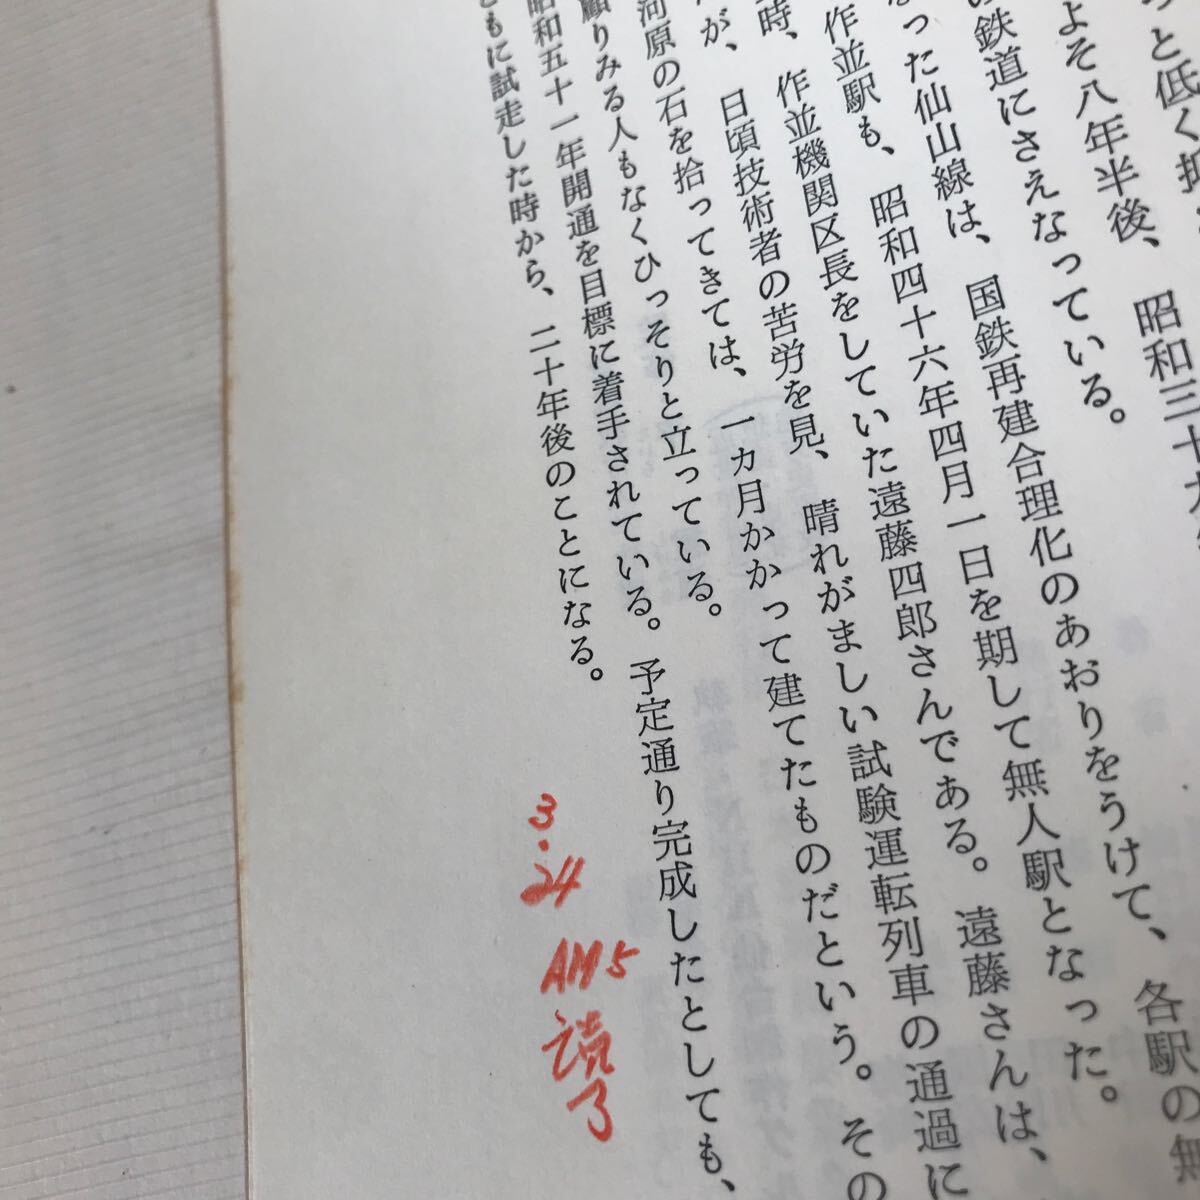 っと低く
よそ八年半後、昭和三十九
鉄道にさえなっている。
なった仙山線は、国鉄再建合理化のあおりをうけて、各駅の無
作並駅も、昭和四十六年四月一日を期して無人駅となった。
時、作並機関区長をしていた遠藤四郎さんである。遠藤さんは、
が、日頃技術者の苦労を見、晴れがましい試験運転列車の通過に
河原の石を拾ってきては、一カ月かかって建てたものだという。その
顧りみる人もなくひっそりと立っている。
昭和五十一年開通を目標に着手されている。予定通り完成したとしても、
ともに試走した時から、二十年後のことになる。
3.24 AM5 読了